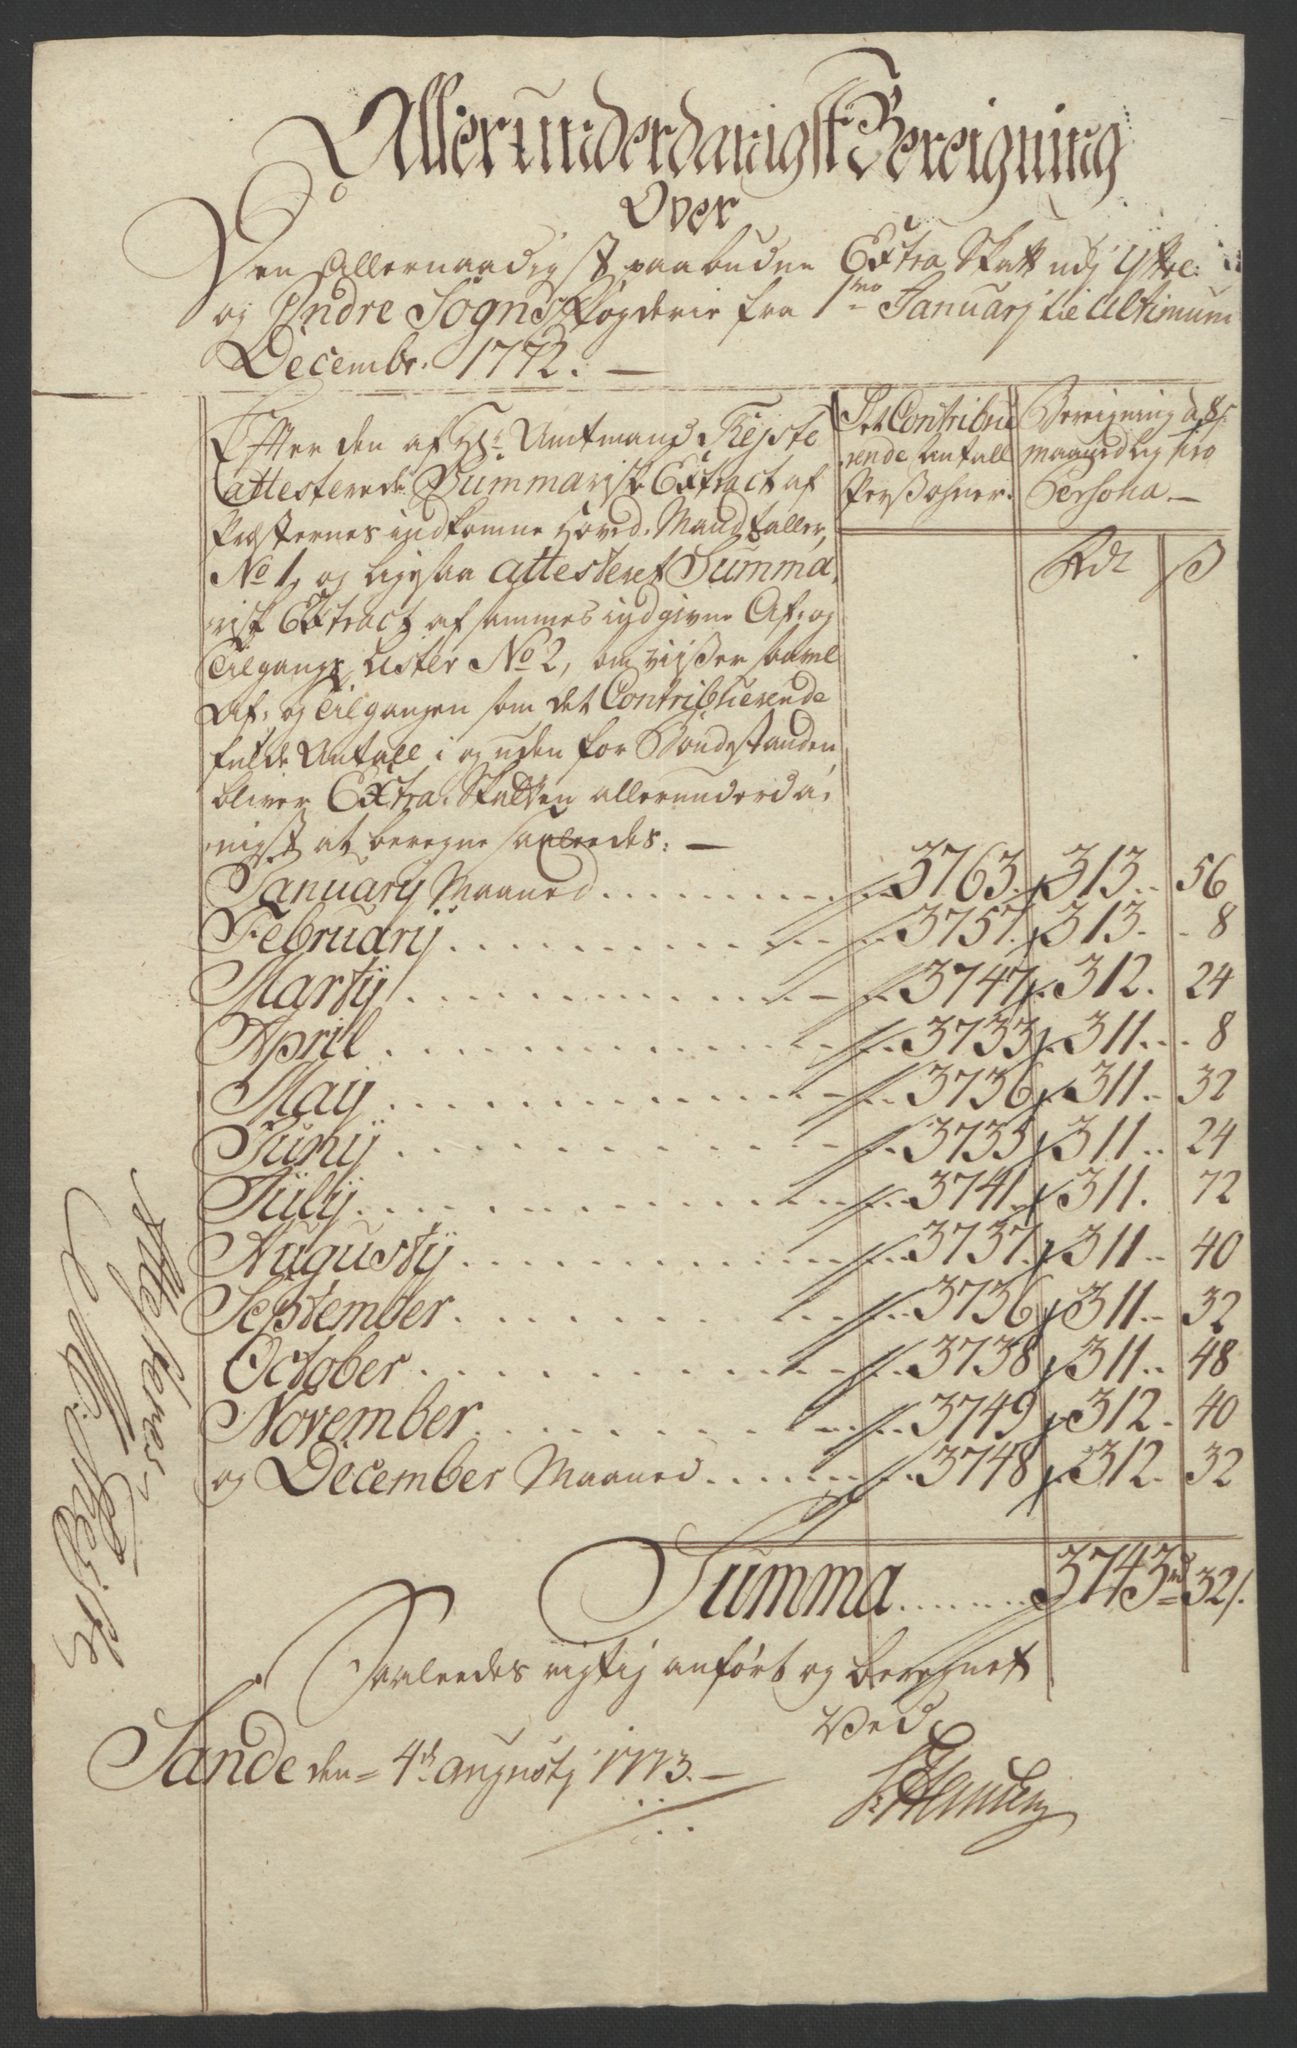 Allerunderdanigst Bereigning
Over
Den Allernaadigst paabudne Extra Skatt udj Yttre-
og Indre Sogns Fogderie fra 1mo Januarij til Ultimum
Decembr. 1772. —
Efter den af Hr. Amtmand Tejste
attesterede Summarisk Extract af
Præsternes indkomne Hoved-Mandtaller,
No 1, og ligesaa attesteret Summa-
risk Extract af sammes indgivne Af- og
Tilgangs Lister No 2, om viiser saavel
Af- og Tilgangen som det Contribuerende
fulde Antall i og uden for Bondestanden,
bliver Extra-Skatten allerunderda-
nigst at beregne saaledes: —
Det Contribue
rende Antall
Persohner.
Bereigning à 8 s
maanedlig pro
Persona —
Rdr ß
January Maaned 3763. 313. 56
February 3757. 313. 8
Martij 3747. 312. 24
April 3733. 311. 8
Maij 3736. 311. 32
Junij 3735. 311. 24
Julij 3741. 311. 72
Augustij 3737. 311. 40
September 3736. 311. 32
October 3738. 311. 48
November 3749. 312. 40
og December Maaned 3748. 312. 32
Summa 3743rd 32/.
Saaledes rigtig anført og beregnet
Ved
Sande den 4de Augustij 1773. —
Attesteres
Tejste